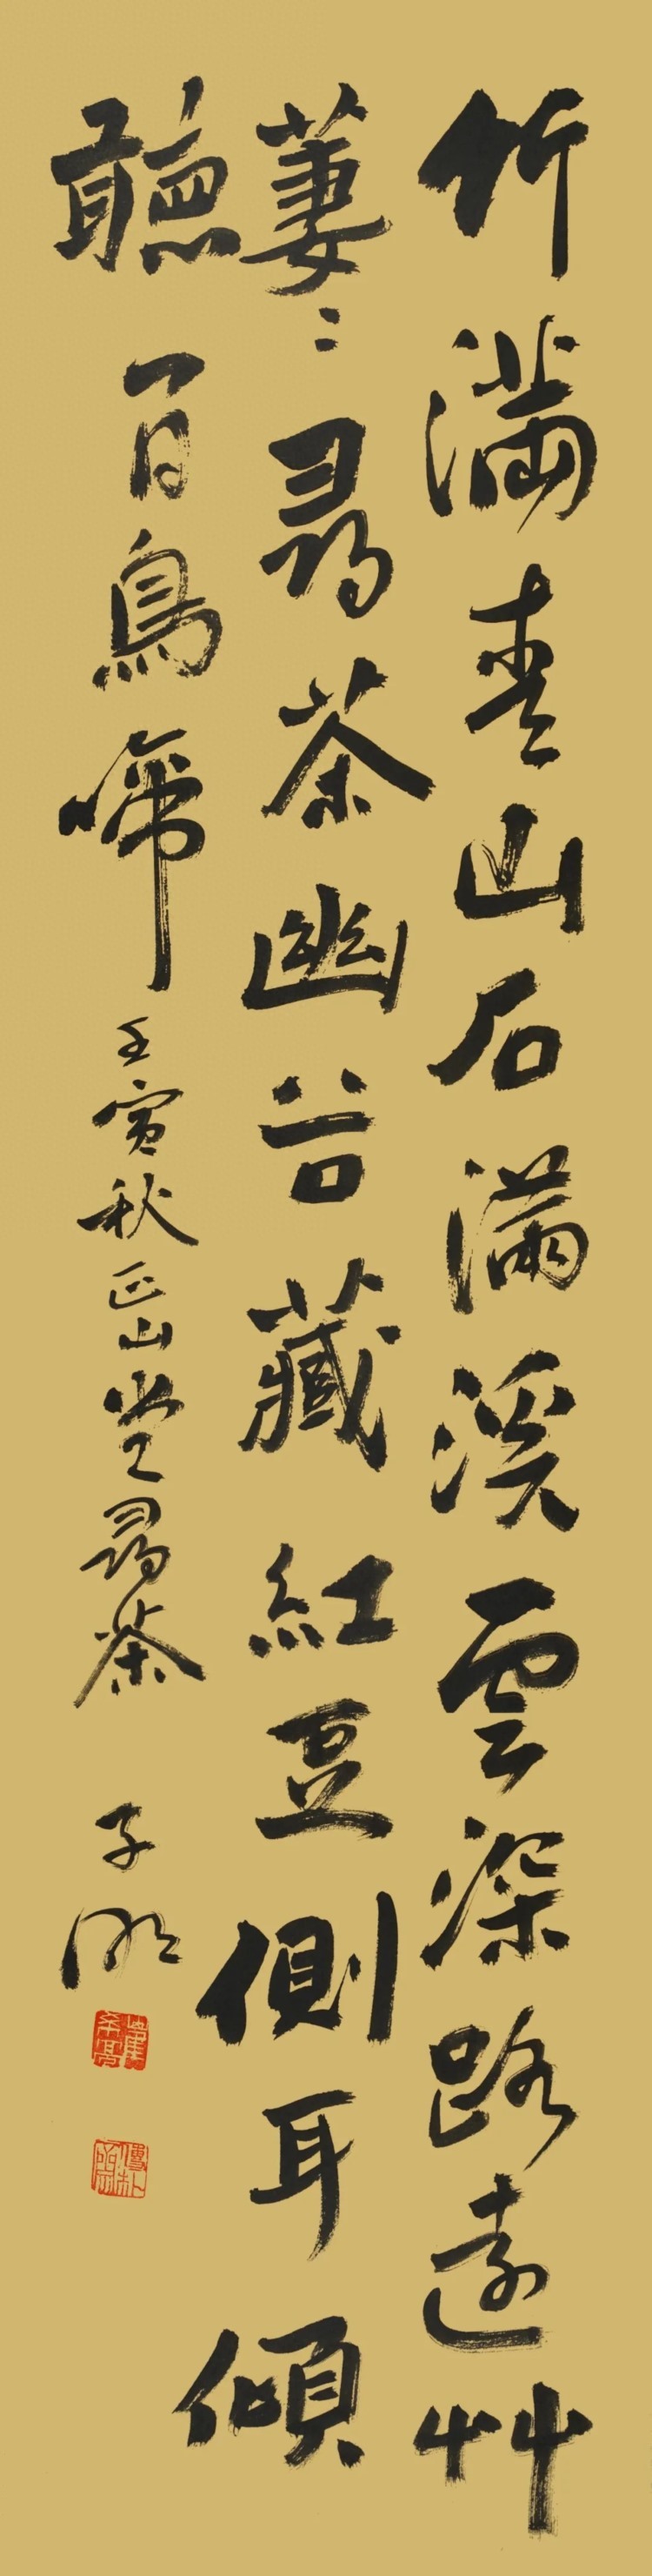 竹滿青山石滿溪雲深路遠艸
萋〻尋茶幽谷藏紅豆側耳傾
聽百鳥啼 壬寅秋正山堂尋茶 子